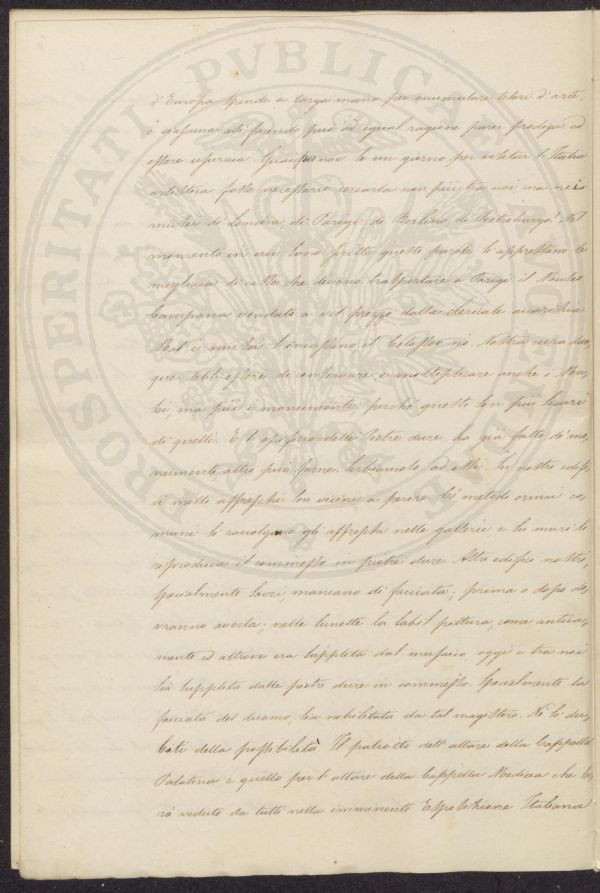 d'Europa spende a larga mano per accumulare tesori d'arte.
e ciascuna ciò facendo può ad egual ragione parer prodiga ad
essere usuraia. Guai se un giorno per istudiar l'Italia
artistica fosse necessario cercarla non più tra noi, ma nei
musei di Londra, di Parigi, di Berlino di Pietroburgo! Nel
momento in cui sono scritte queste parole si apprestano le
migliaia di casse che devono trasportare a Parigi il Museo
Campana venduto a vil prezzo dalla clericale avarizia
Ma i musei s'incassano, il Colosseo no. Nostra cura dun
que debb'essere di conservare, e moltiplicare anche i Mu-
sei, ma più i monumenti perchè questi son più sicuri
di quelli. E l'opificio delle Pietre dure ha già fatto de' mo
numenti, altri può farne. Serbiamolo ad essi. In nostri edifi
ci molti affreschi son vicini a perire. Co' metodi ormai co
muni si raccolgano gli affreschi nelle gallerie e su muri si
riproduca il commesso in pietre dure. Altri edifizi nostri,
specialmente sacri, mancano di facciata; prima o dopo do
vranno averla; nelle lunette la labil pittura, come antica
mente ed altrove era supplita dal musaico, oggi e tra noi
sia supplita dalle pietre dure in commesso. Specialmente la
facciata del duomo, sia nobilitata da tal magistero. Nè si du
biti della possibilità. Il paliotto dell'altare della Cappella
Palatina e quello per l'altare della Cappella Medicea che sa
rà veduto da tutti nella imminente Esposizione Italiana
PROSPERITATI PVBLICAE